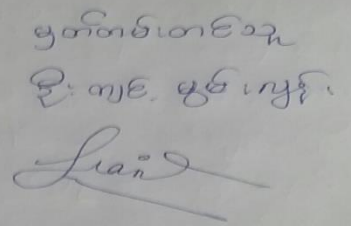 မှတ်တမ်းတင်သူ
ဦး ကျင့် မွှမ်း လျန်း
Lian